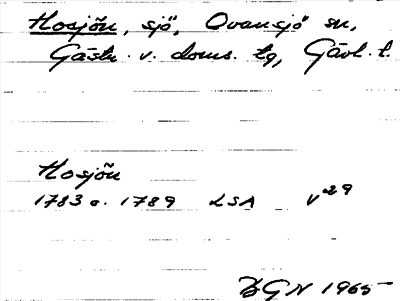 Hosjön, sjö, Ovansjö sn,
Gästr. v. doms. tg, Gävl. l.
Hosjön
1783 o. 1789 LSA V29
GN 1965